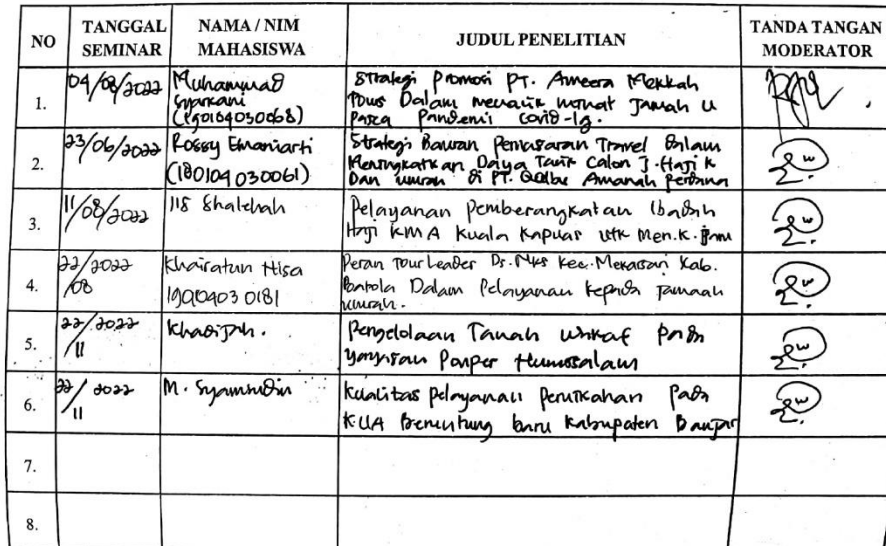 NO TANGGAL SEMINAR NAMA / NIM MAHASISWA JUDUL PENELITIAN TANDA TANGAN MODERATOR
1. 04/08/2022 Muhammad Syarkani Strategi Promosi PT. Ameera Mekkah
Tours Dalam menarik minat Jamah U
Pasca Pandemi Covid-19.
2. 23/06/2022 Rossy Emaniarti (180104030061) Strategi Bauran Pemasaran Travel Dalam
Meningkatkan Daya Tarik Calon J. Haji K
Dan umrah di PT. Qolbu Amanah Perdana
3. 11/08/2022 Iis Shalehah Pelayanan Pemberangkatan Ibadah
Haji KMA Kuala Kapuas utk Men.K. jam
4. 22/2022/08 Khairatun Nisa Peran Tour Leader Ds. Kec. Mekarsari Kab.
Batola Dalam Pelayanan kepada Jamaah
umrah.
5. 22/2022/11 Khadijah. Pengelolaan Tanah wakaf pada
yayasan Ponpes
6. 22/2022/11 M. Syamsudin Kualitas pelayanan pernikahan pada
KUA Beruntung baru Kabupaten Banjar
7.
8.